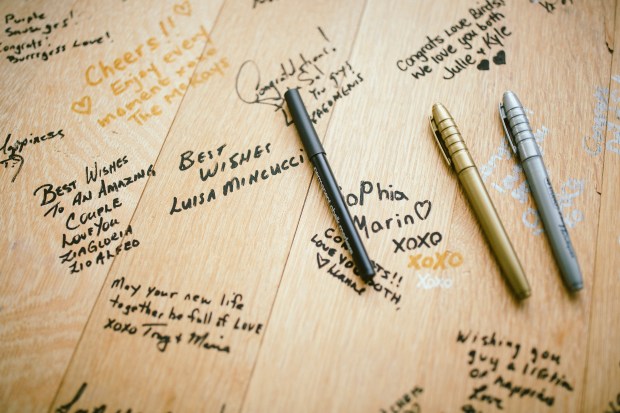 Purple
Sausages!
Congrats!
Love!
Cheers!!
Enjoy every
moment xoxo
The McKays
Congratulations!
you guys!
Congrats Love Birds!
We love you both
Julie & Kyle
Happiness
Best Wishes
To An Amazing
Couple
Love You
Zia Gloria
Zio Alfeo
Best
Wishes
Luisa Mincucci
Sophia
Marin
xoxo
xoxo
xoxo
Love you
Both
May your new life
together be full of Love
xoxo Tony & Maria
Wishing you
guy a lifetime
of happiness
Love